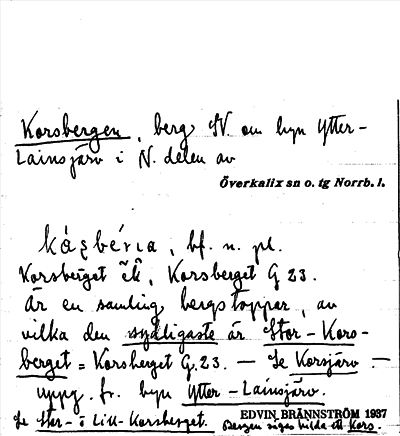 Korsbergen, berg SV. om byn Ytter-
Lainsjärv i N. delen av
Överkalix sn o. tg Norrb. l.
bf. n. pl.
Korsberget ek, Korsberget G 23.
Är en samling bergstoppar, av
vilka den sydligaste är Stor-Kors-
berget = Korsberget G. 23. — Se Korsjärv. —
Uppg. fr. byn Ytter-Lainsjärv.
Se Stor- o Lill-Korsberget.
EDVIN BRÄNNSTRÖM 1937
Bergen säges bilda ett Kors.